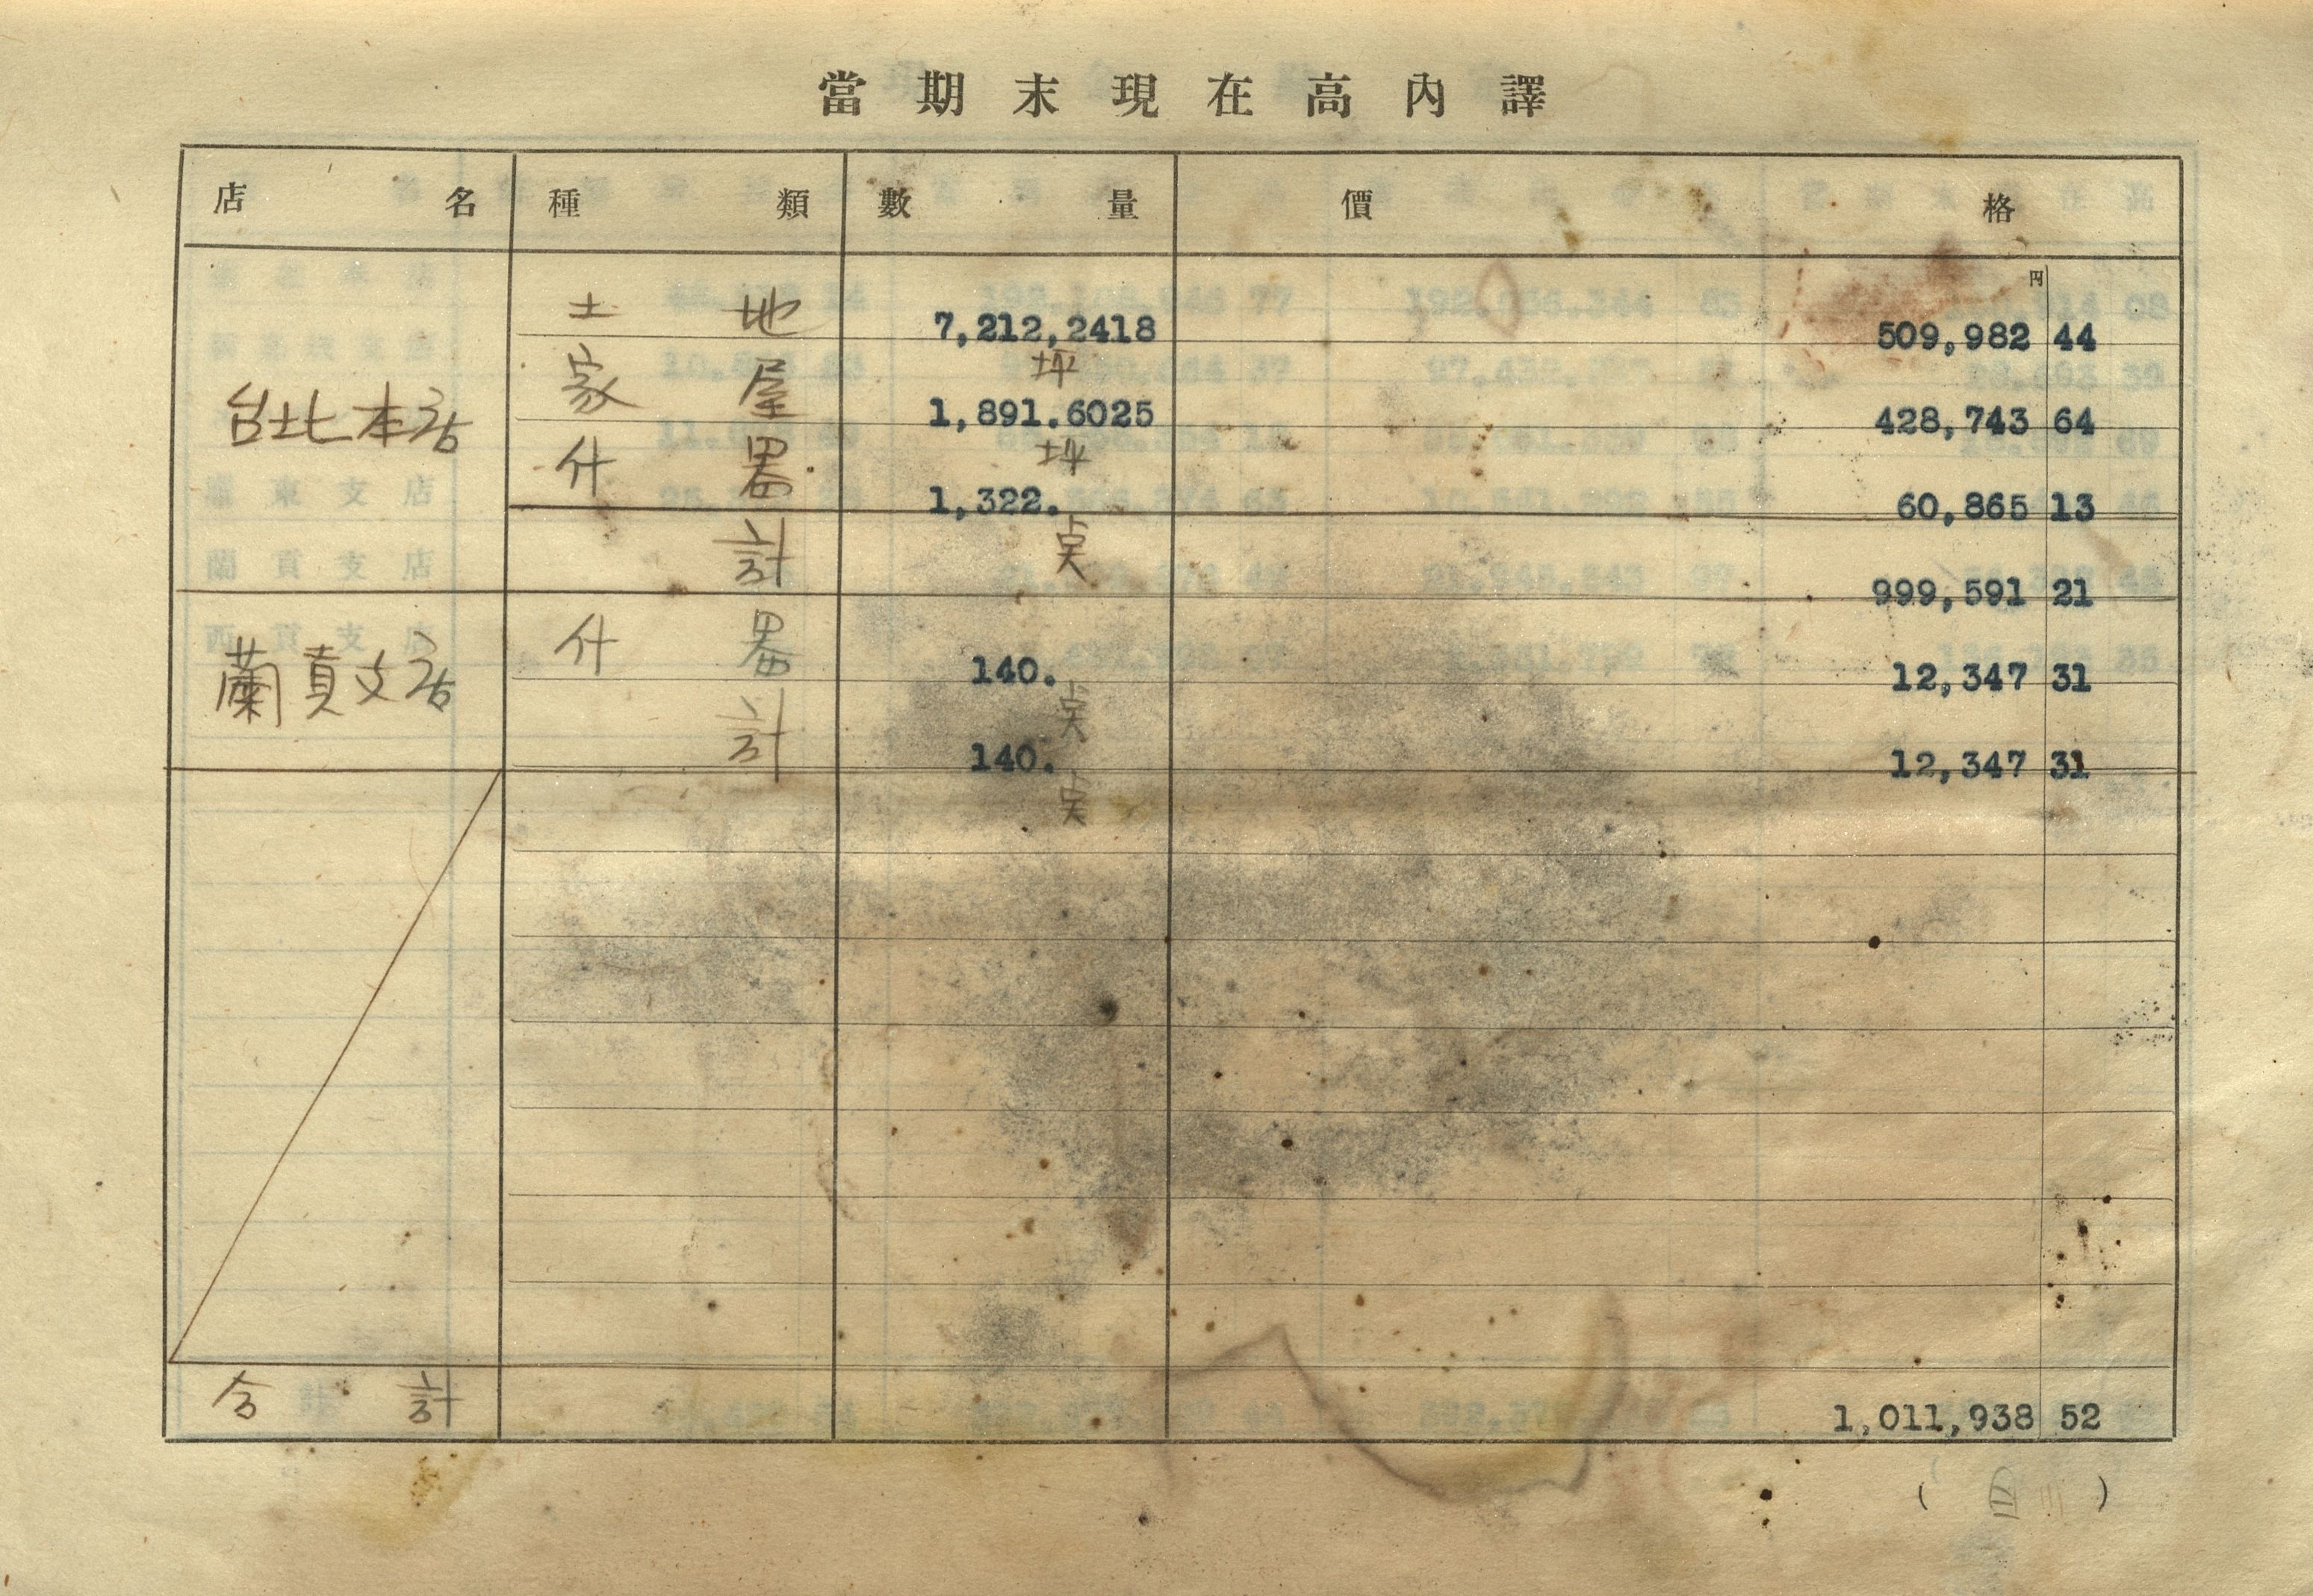 當期末現在高內譯
店名 種類 數量 價格
円
台北本店 土地 7,212,2418坪 509,982 44
家屋 1,891.6025坪 428,743 64
什器 1,322.点 60,865 13
計 999,591 21
蘭貢支店 什器 140.点 12,347 31
計 140.点 12,347 31
合計 1,011,938 52